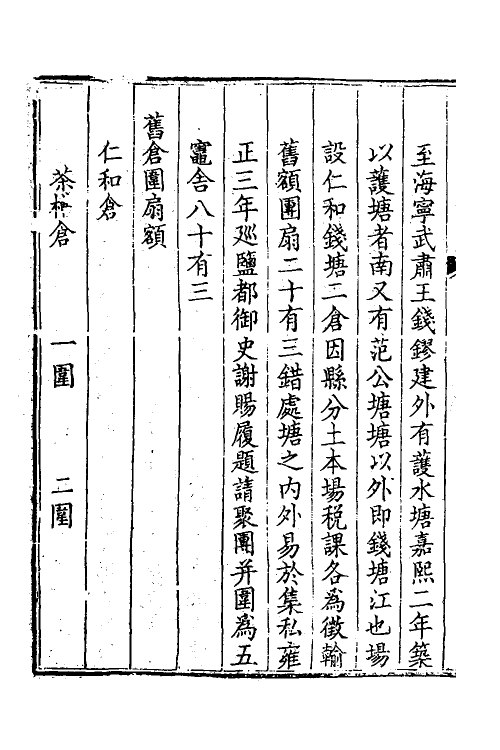 至海寧武肅王錢鏐建外有護水塘嘉熙二年築
以護塘者南又有范公塘塘以外即錢塘江也場
設仁和錢塘二倉因縣分土本場稅課各為徵輸
舊額團扇二十有三錯處塘之内外易於集私雍
正三年廵鹽都御史謝賜履題請聚團并圍為五
竈舍八十有三
舊倉團扇額
仁和倉
茶槽倉　一圍　二圍